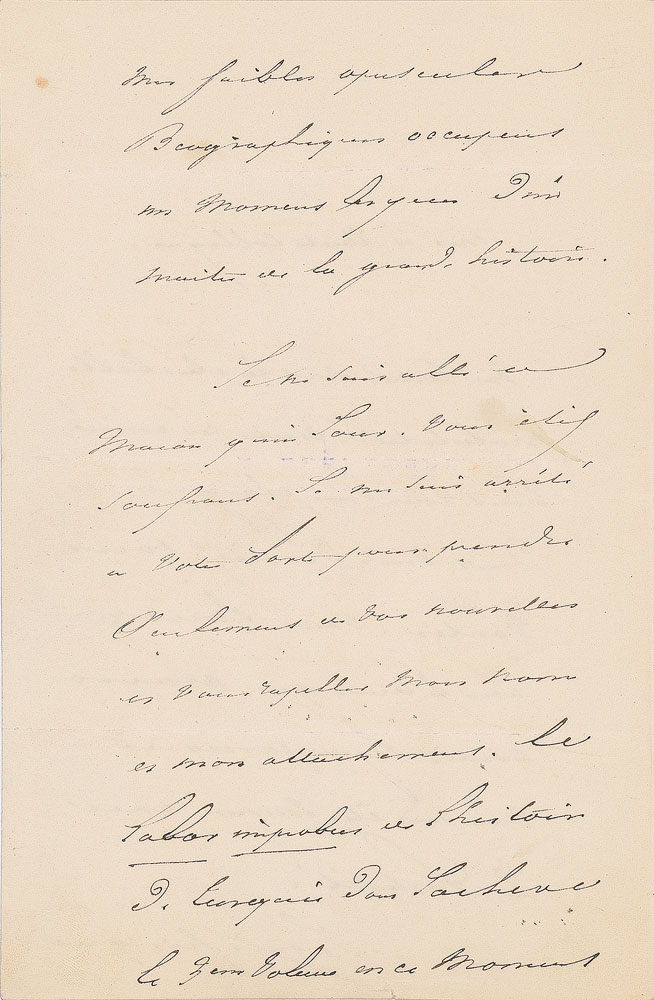 mes faibles opuscules
Biographiques occupent
un moment les yeux d'un
maitre de la grande histoire.
Je ne suis allé a
Macon qu'un jour. Vous étiez
souffrant. Je me suis arrêté
a votre porte pour prendre
seulement de vos nouvelles
et vous rapeller mon nom
et mon attachement. le
Labor improbus de l'histoire
de turquie dont j'acheve
le 7eme volume en ce moment